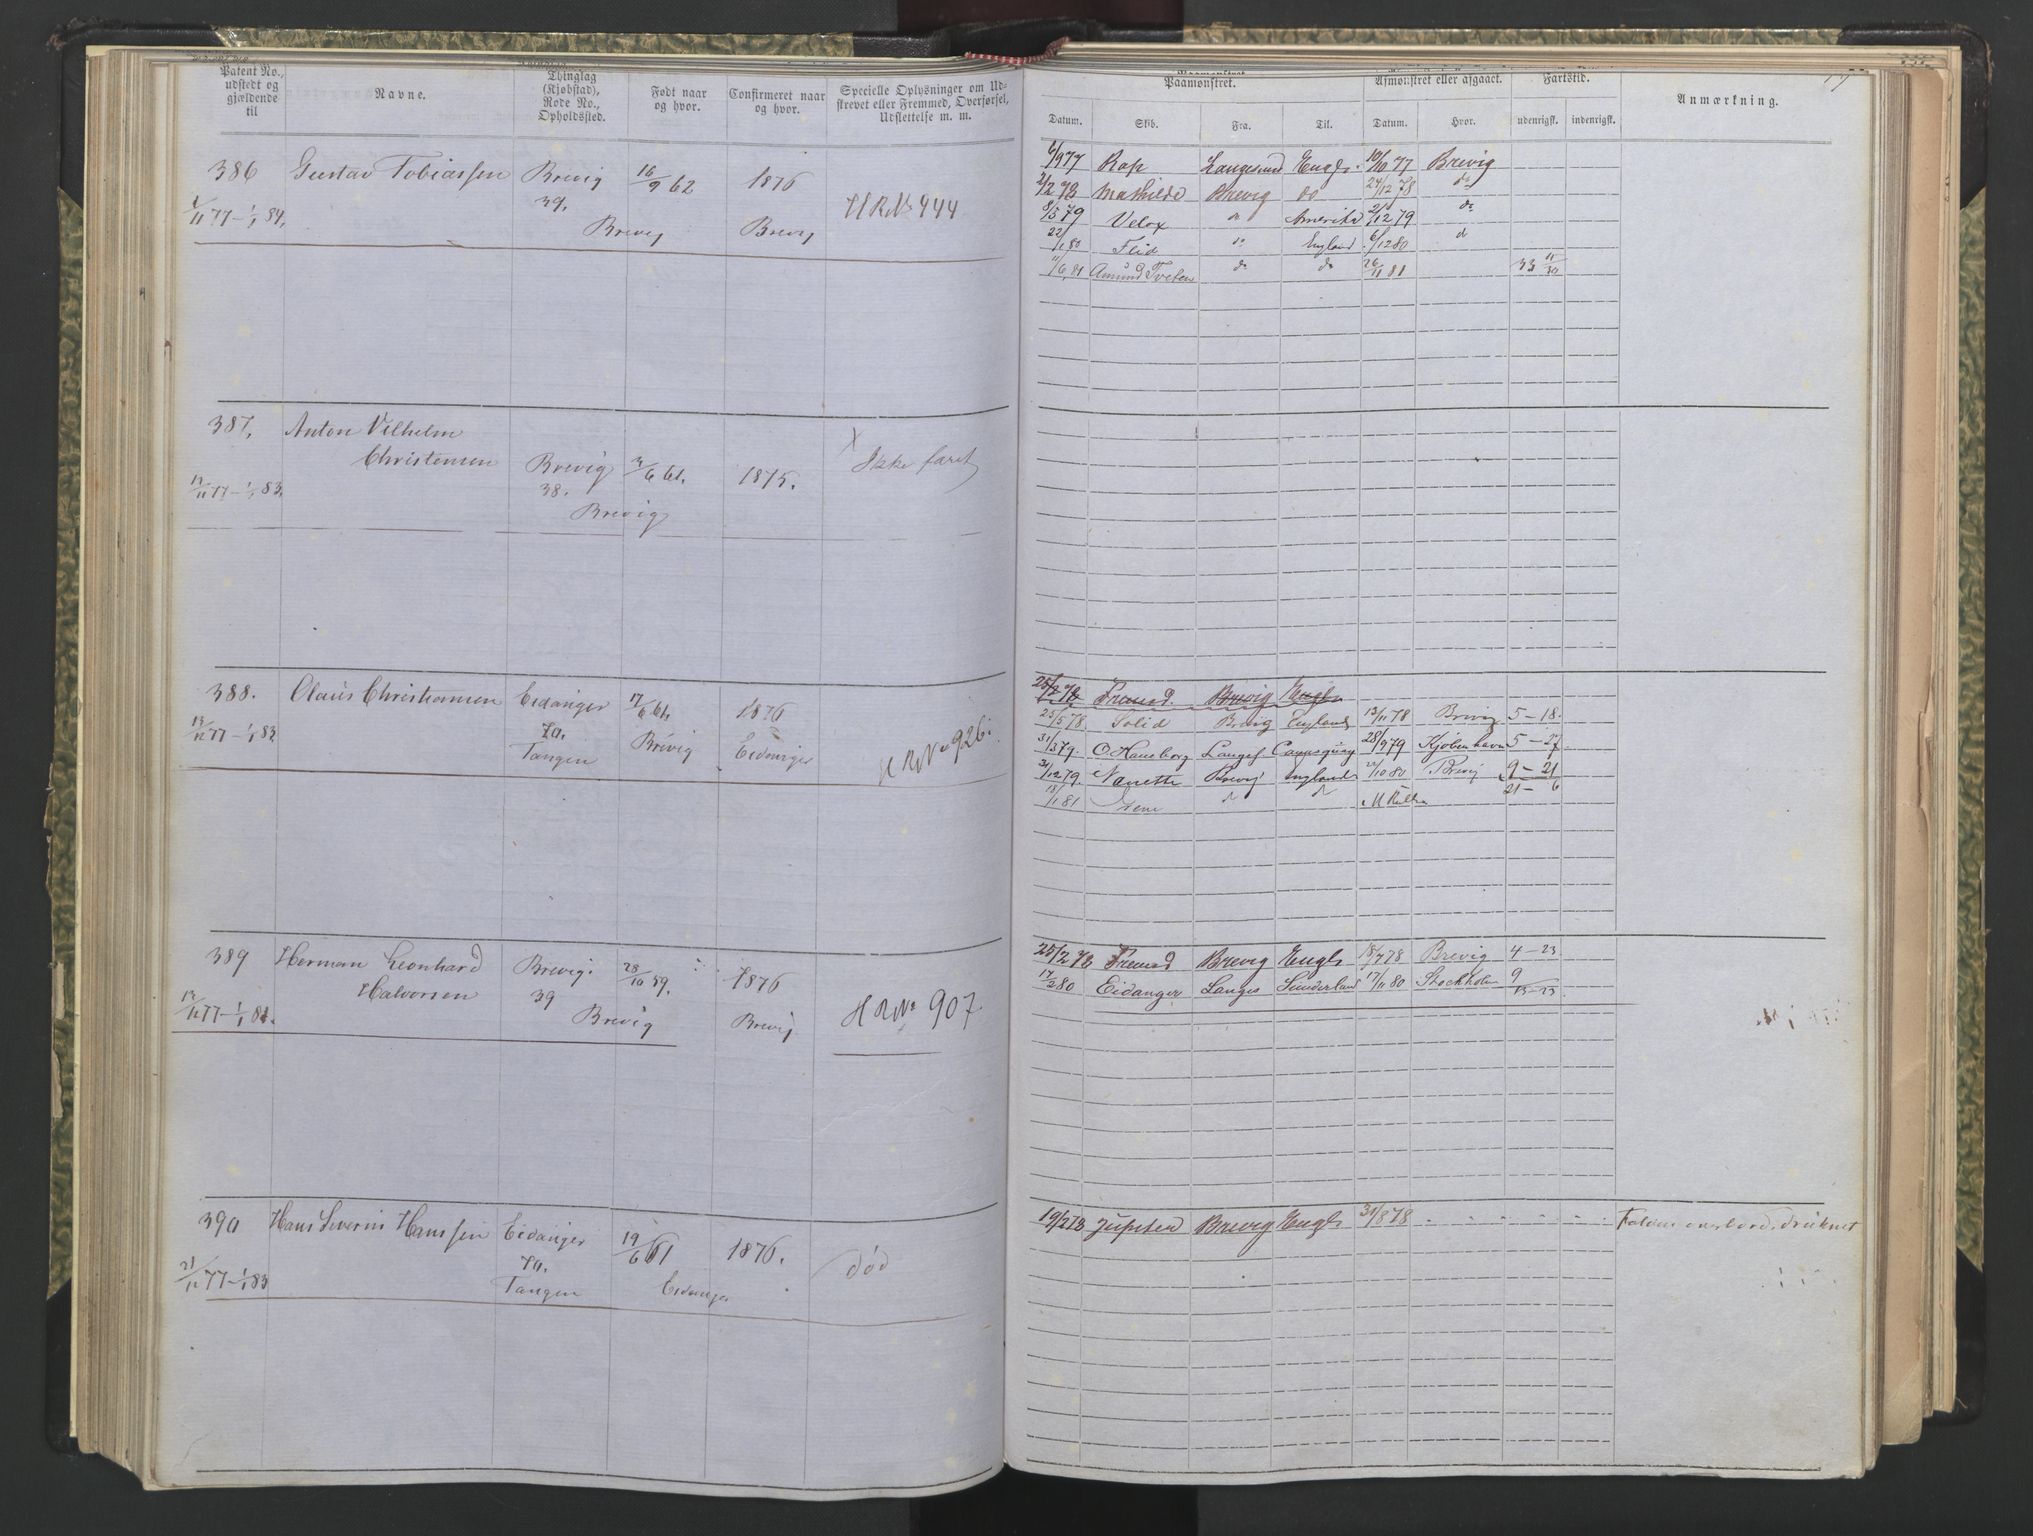 Patent No., udstedt og gjældende til
Navne.
Thinglag (Kjøbstad), Rode No., Opholdssted.
Født naar og hvor.
Confirmeret naar og hvor.
Specielle Oplysninger om Udskrevet eller Fremmed, Overførsel, Udslettelse m. m.
Paamønstret.
Afmønstret eller afgaaet.
Fartstid.
Anmærkning.
Datum. Skib. Fra. Til. Datum. Hvor. udenrigsk. indenrigsk.
386 Gustav Tobiassen Brevig 16/9 62 1876
1/11 77 – 1/1 84. 39. H R. No 444
Brevig Brevig
6/9 77 Rap Langesund Engl. 10/10 77 Brevig
2/2 78 Mathilde Brevig do 24/12 78 do
8/5 79 Velox do Amerika 2/12 79 do
22/1 80 do England 6/12 80 d
11/6 81 Amund Tveten do do 26/11 81 33 11/30
387. Anton Vilhelm
Christensen Brevig 3/6 61. 1875. Ikke faret
13/11 77 – 1/1 83. 38.
Brevig
388. Olaus Christiansen Eidanger 17/6 61. 1876
13/12 77 – 1/1 83. 7a. Brevig Eidanger H R No 926.
Tangen
25/2 78 Freund. Brevig Engl.
25/5 78. Solid Brevig England 13/11 78 Brevig 5 – 18.
31/3 79. O Hansborg Langes. 28/9 79 Kjøbenhavn 5 – 27
31/12 79. Nanette Brevig England 22/10 80 Brevig 9 – 21
18/1 81 d d 21 – 6
389 Herman Leonhard Brevig. 28/10 59. 1876
Halvorsen 39
13/12 77 – 1/1 81. Brevig Brevig H R No 907.
25/2 78 Freund Brevig Engl. 18/7 78 Brevig 4 – 23
17/2 80 Eidanger Langes Sunderland 17/11 80 Stockholm 9
13 – 23
390 Hans Severin Hanssen Eidanger 19/6 61 1876. død
21/12 77 – 1/1 83 7a.
Tangen Eidanger
19/2 78 Jupiter Brevig Engl. 31/8 78 Falden overbord, druknet